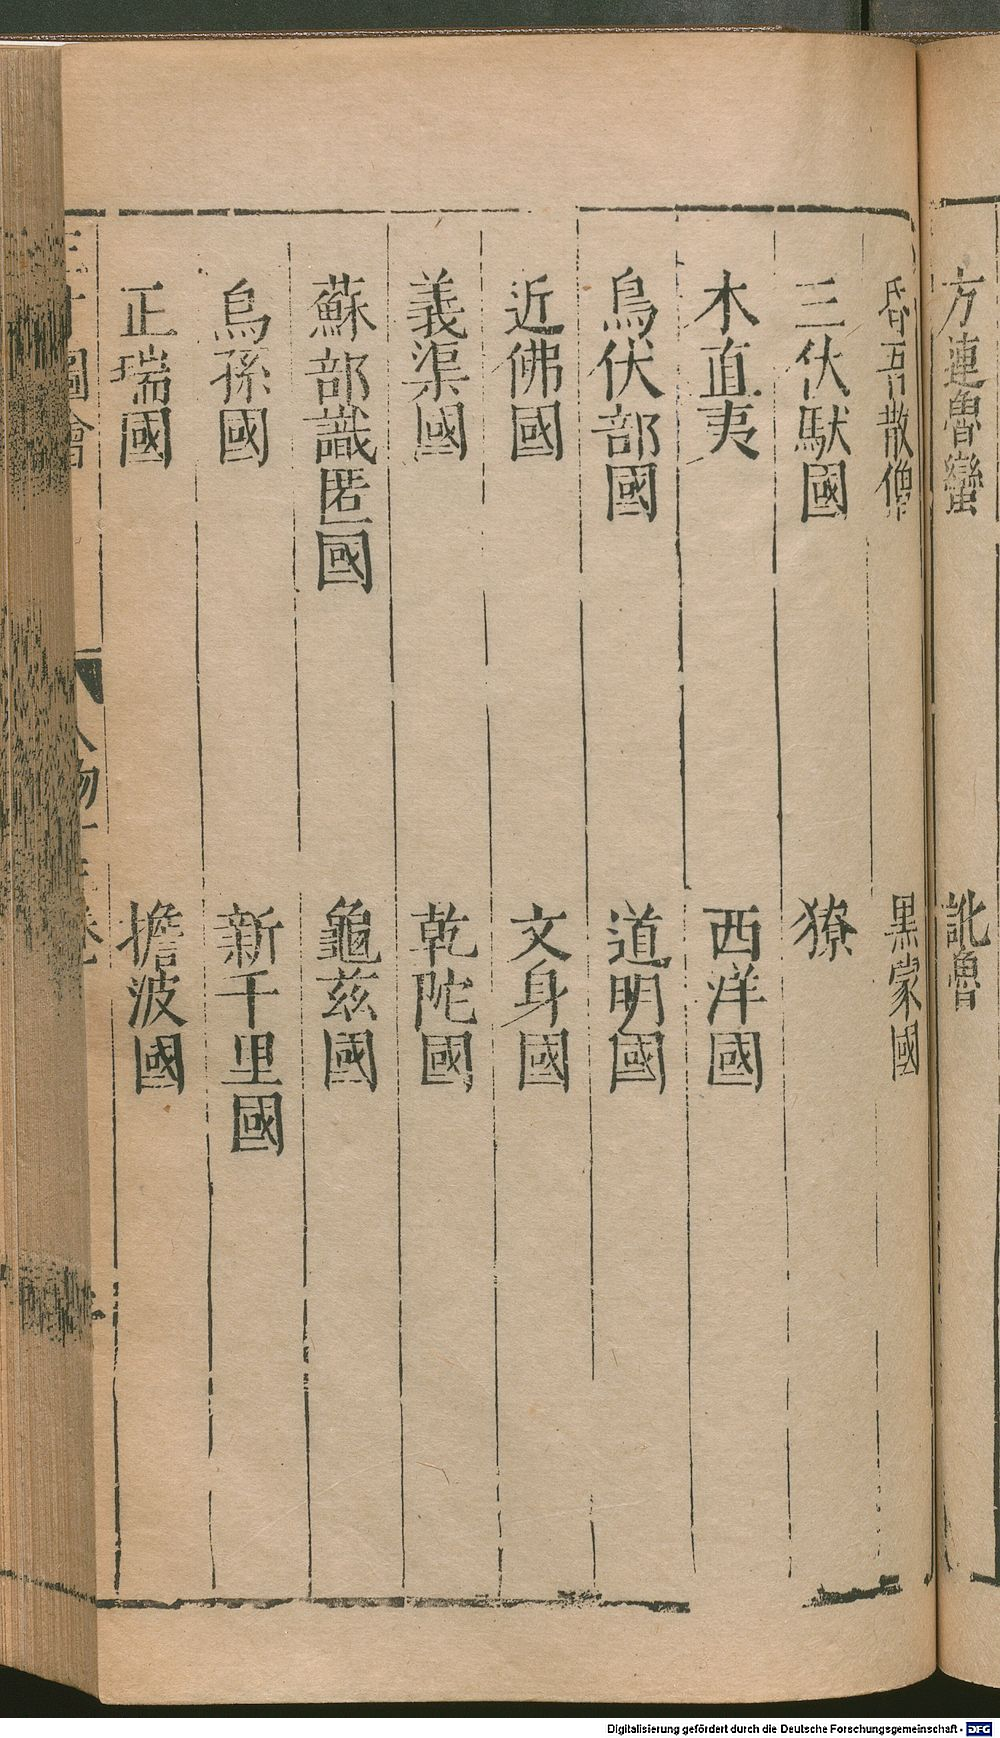 方連魯蠻 訛魯
昏吾散僧 黑蒙國
三伏馱國 獠
木直夷 西洋國
鳥伏部國 道明國
近佛國 文身國
義渠國 乾陀國
蘇部識匿國 龜茲國
烏孫國 新千里國
正瑞國 擔波國
圖會
人物
Digitalisierung gefördert durch die Deutsche Forschungsgemeinschaft - DFG